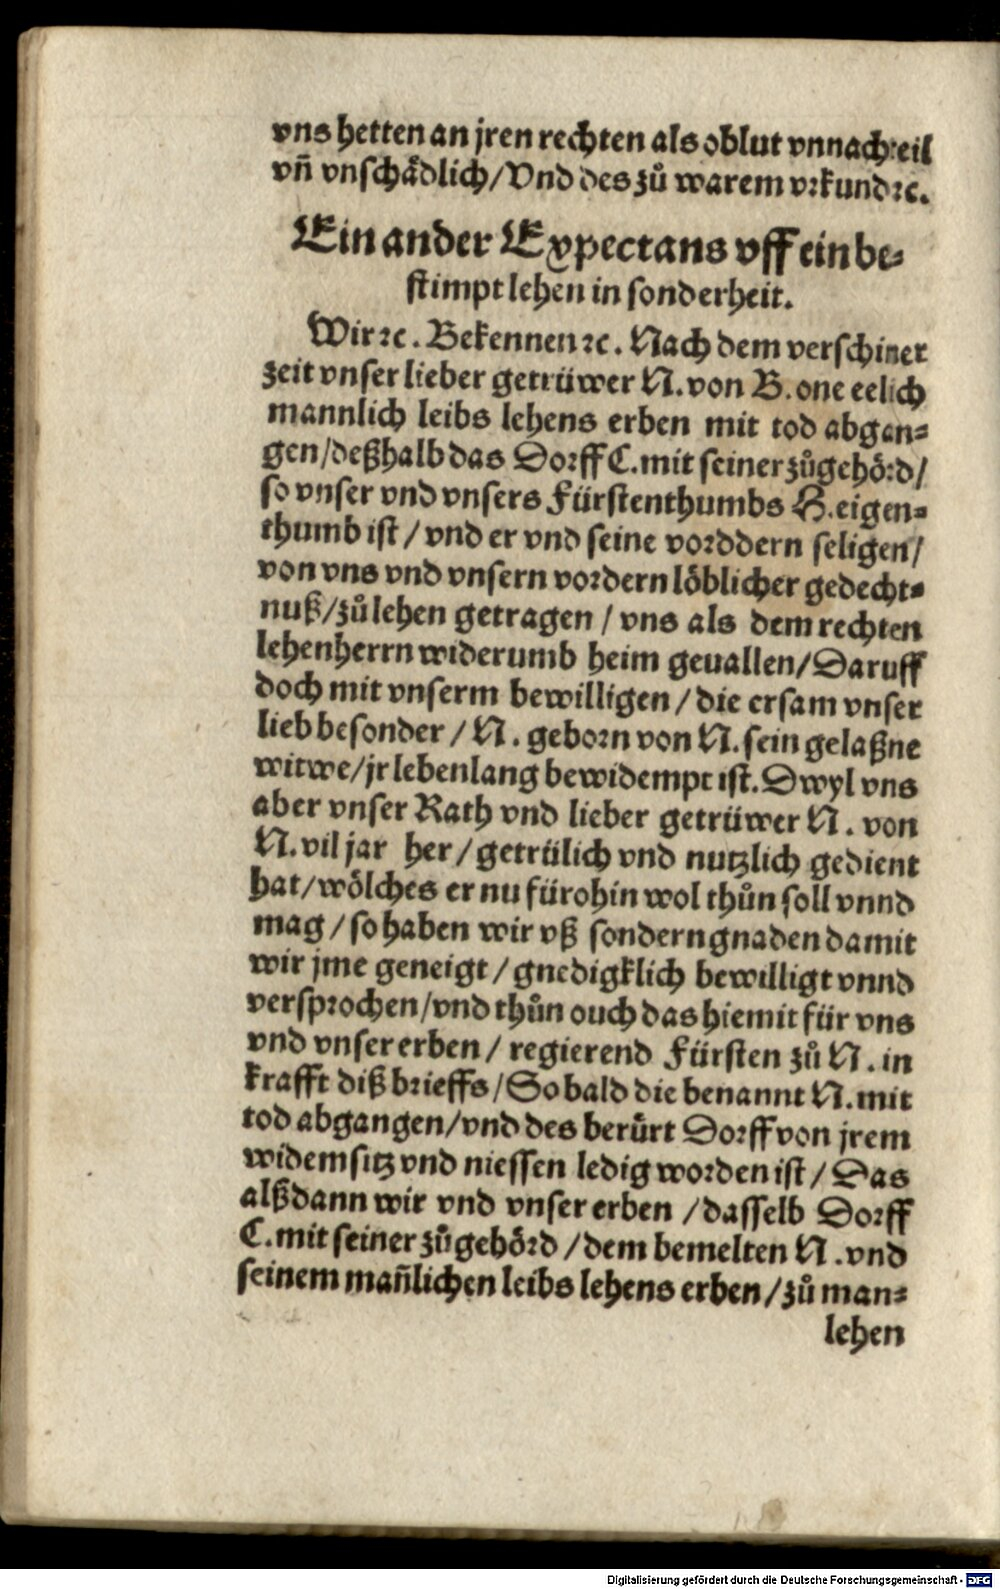 vns hetten an jren rechten als oblut vnnachteil
vñ vnschådlich/Vnd des zů warem vrkund ꝛc.
Ein ander Expectans vff ein be⸗
stimpt lehen in sonderheit.
Wir ꝛc. Bekennen ꝛc. Nach dem verschiner
zeit vnser lieber getrüwer N. von B. one eelich
mannlich leibs lehens erben mit tod abgan⸗
gen/deßhalb das Dorff C. mit seiner zůgehörd/
so vnser vnd vnsers Fürstenthumbs H. eigen⸗
thumb ist/ vnd er vnd seine vorddern seligen/
von vns vnd vnsern vordern löblicher gedecht⸗
nuß/zů lehen getragen / vns als dem rechten
lehenherrn widerumb heim geuallen/Daruff
doch mit vnserm bewilligen / die ersam vnser
lieb besonder / N. geborn von N. sein gelaßne
witwe/jr lebenlang bewidempt ist. Dwyl vns
aber vnser Rath vnd lieber getrüwer N. von
N. vil jar her/ getrülich vnd nutzlich gedient
hat/wölches er nu fürohin wol thůn soll vnnd
mag / so haben wir vß sondern gnaden damit
wir jme geneigt / gnedigklich bewilligt vnnd
versprochen/vnd thůn ouch das hiemit für vns
vnd vnser erben / regierend Fürsten zů N. in
krafft diß brieffs/So bald die benannt N. mit
tod abgangen/vnd des berürt Dorff von jrem
widemsitz vnd niessen ledig worden ist / Das
alßdann wir vnd vnser erben /dasselb Dorff
C. mit seiner zůgehörd /dem bemelten N. vnd
seinem mañlichen leibs lehens erben/zů man⸗
lehen
Digitalisierung gefördert durch die Deutsche Forschungsgemeinschaft - DFG